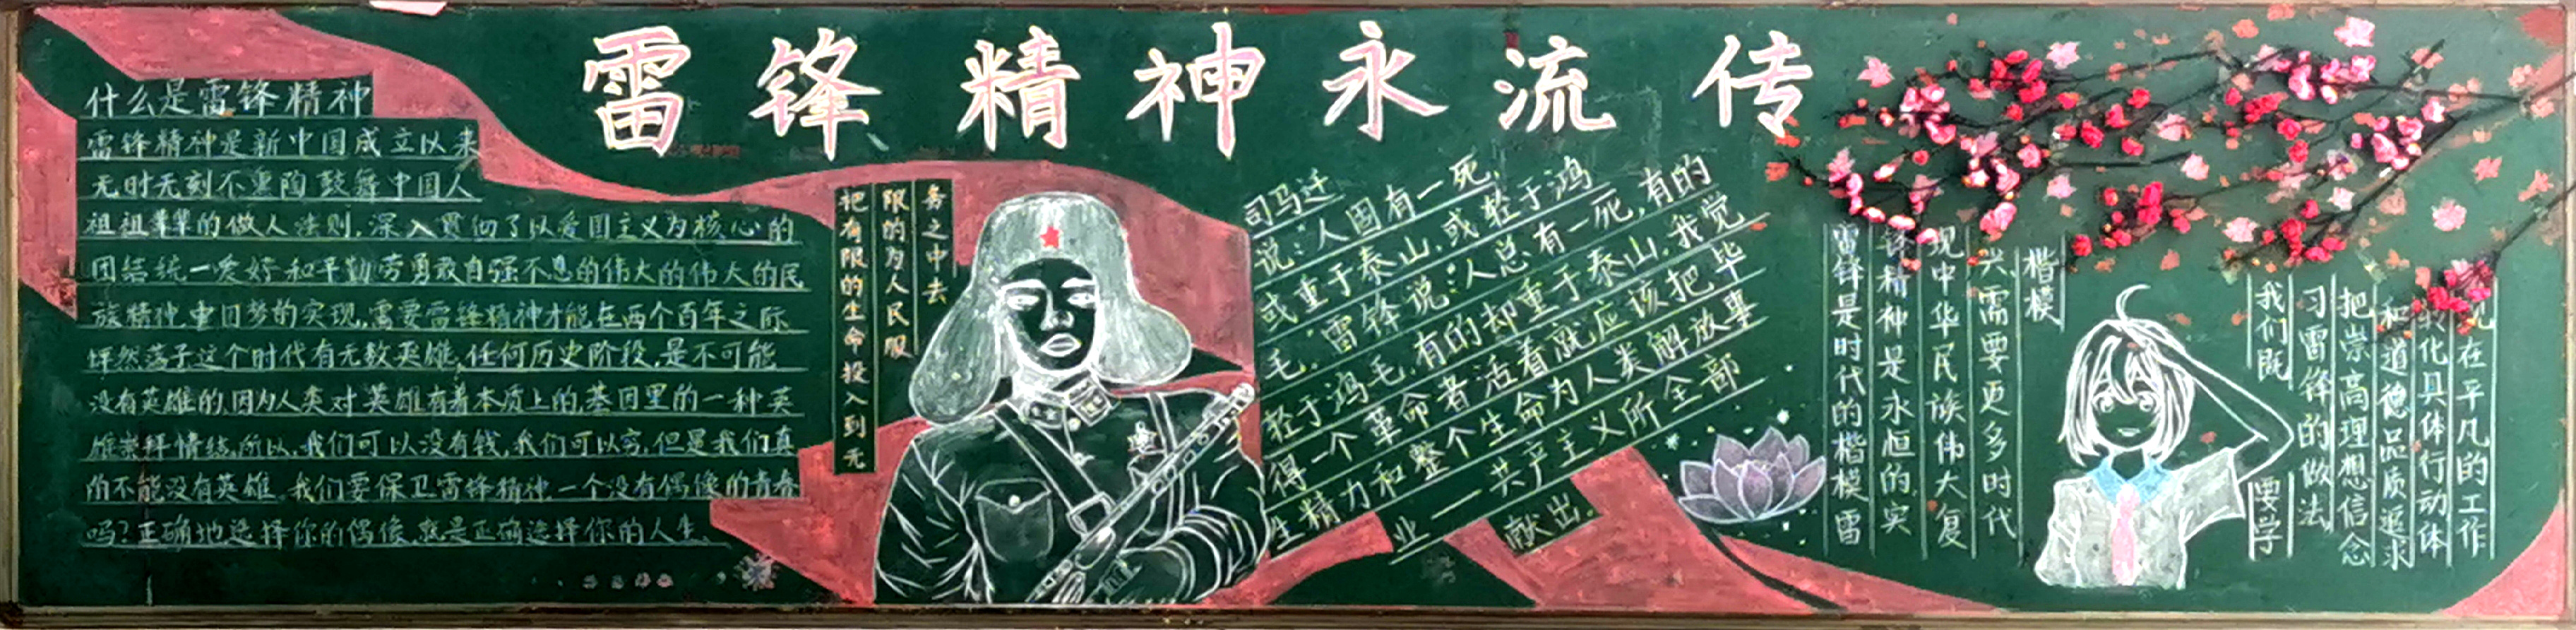 雷锋精神永流传
什么是雷锋精神
雷锋精神是新中国成立以来
无时无刻不熏陶鼓舞中国人
祖祖辈辈的做人法则,深入贯彻了以爱国主义为核心的
团结统一爱好和平勤劳勇敢自强不息的伟大的伟大的民
族精神,中国梦的实现,需要雷锋精神才能在两个百年之际
怦然落予这个时代有无数英雄,任何历史阶段,是不可能
没有英雄的,因为人类对英雄有着本质上的,基因里的一种英
雄崇拜情结,所以,我们可以没有钱,我们可以穷,但是我们真
的不能没有英雄,我们要保卫雷锋精神,一个没有偶像的青春
吗?正确地选择你的偶像,就是正确选择你的人生,
把有限的生命投入到无
限的为人民服
务之中去
司马迁
说:人固有一死,
或重于泰山,或轻于鸿
毛,雷锋说:人总有一死,有的
轻于鸿毛,有的却重于泰山,我觉
得一个革命者活着就应该把毕
生精力和整个生命为人类解放事
业——共产主义所全部
献出。
雷锋是时代的楷模雷
锋精神是永恒的实
现中华民族伟大复
兴需要更多时代
楷模
我们既要学
习雷锋的做法,
把崇高理想信念
和道德品质追求
转化具体行动体
现在平凡的工作